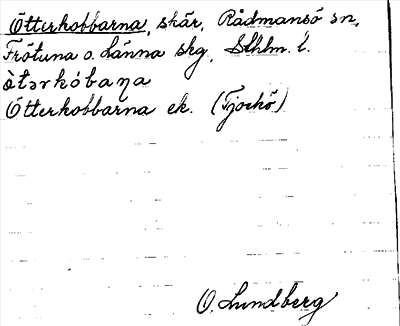 Ötterkobbarna, skär, Rådmansö sn,
Frötuna o. Länna skg, Sthlm. l.
ò̀tərkòbaɳa
Ötterkobbarna ek. (Tjockö)
O. Lundberg